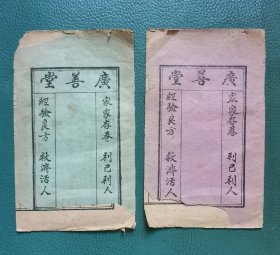 廣善堂
家家存卷 利己利人
經驗良方 救濟活人
廣善堂
家家存卷 利己利人
經驗良方 救濟活人